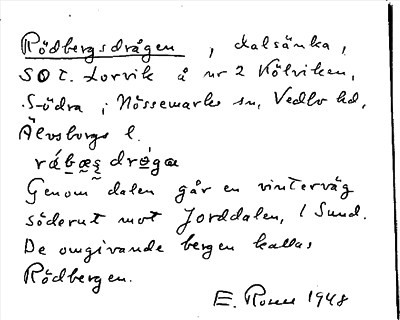 Rödbergsdrågen, dalsänka,
SO t. Lervik å nr 2 Kölviken,
Södra, i Nössemarks sn, Vedbo hd,
Älvsborgs l.
rábæs drǿgα
Genom dalen går en vinterväg
söderut mot Jorddalen, 1 Sund.
De omgivande bergen kallas
Rödbergen.
E. Rosell 1948